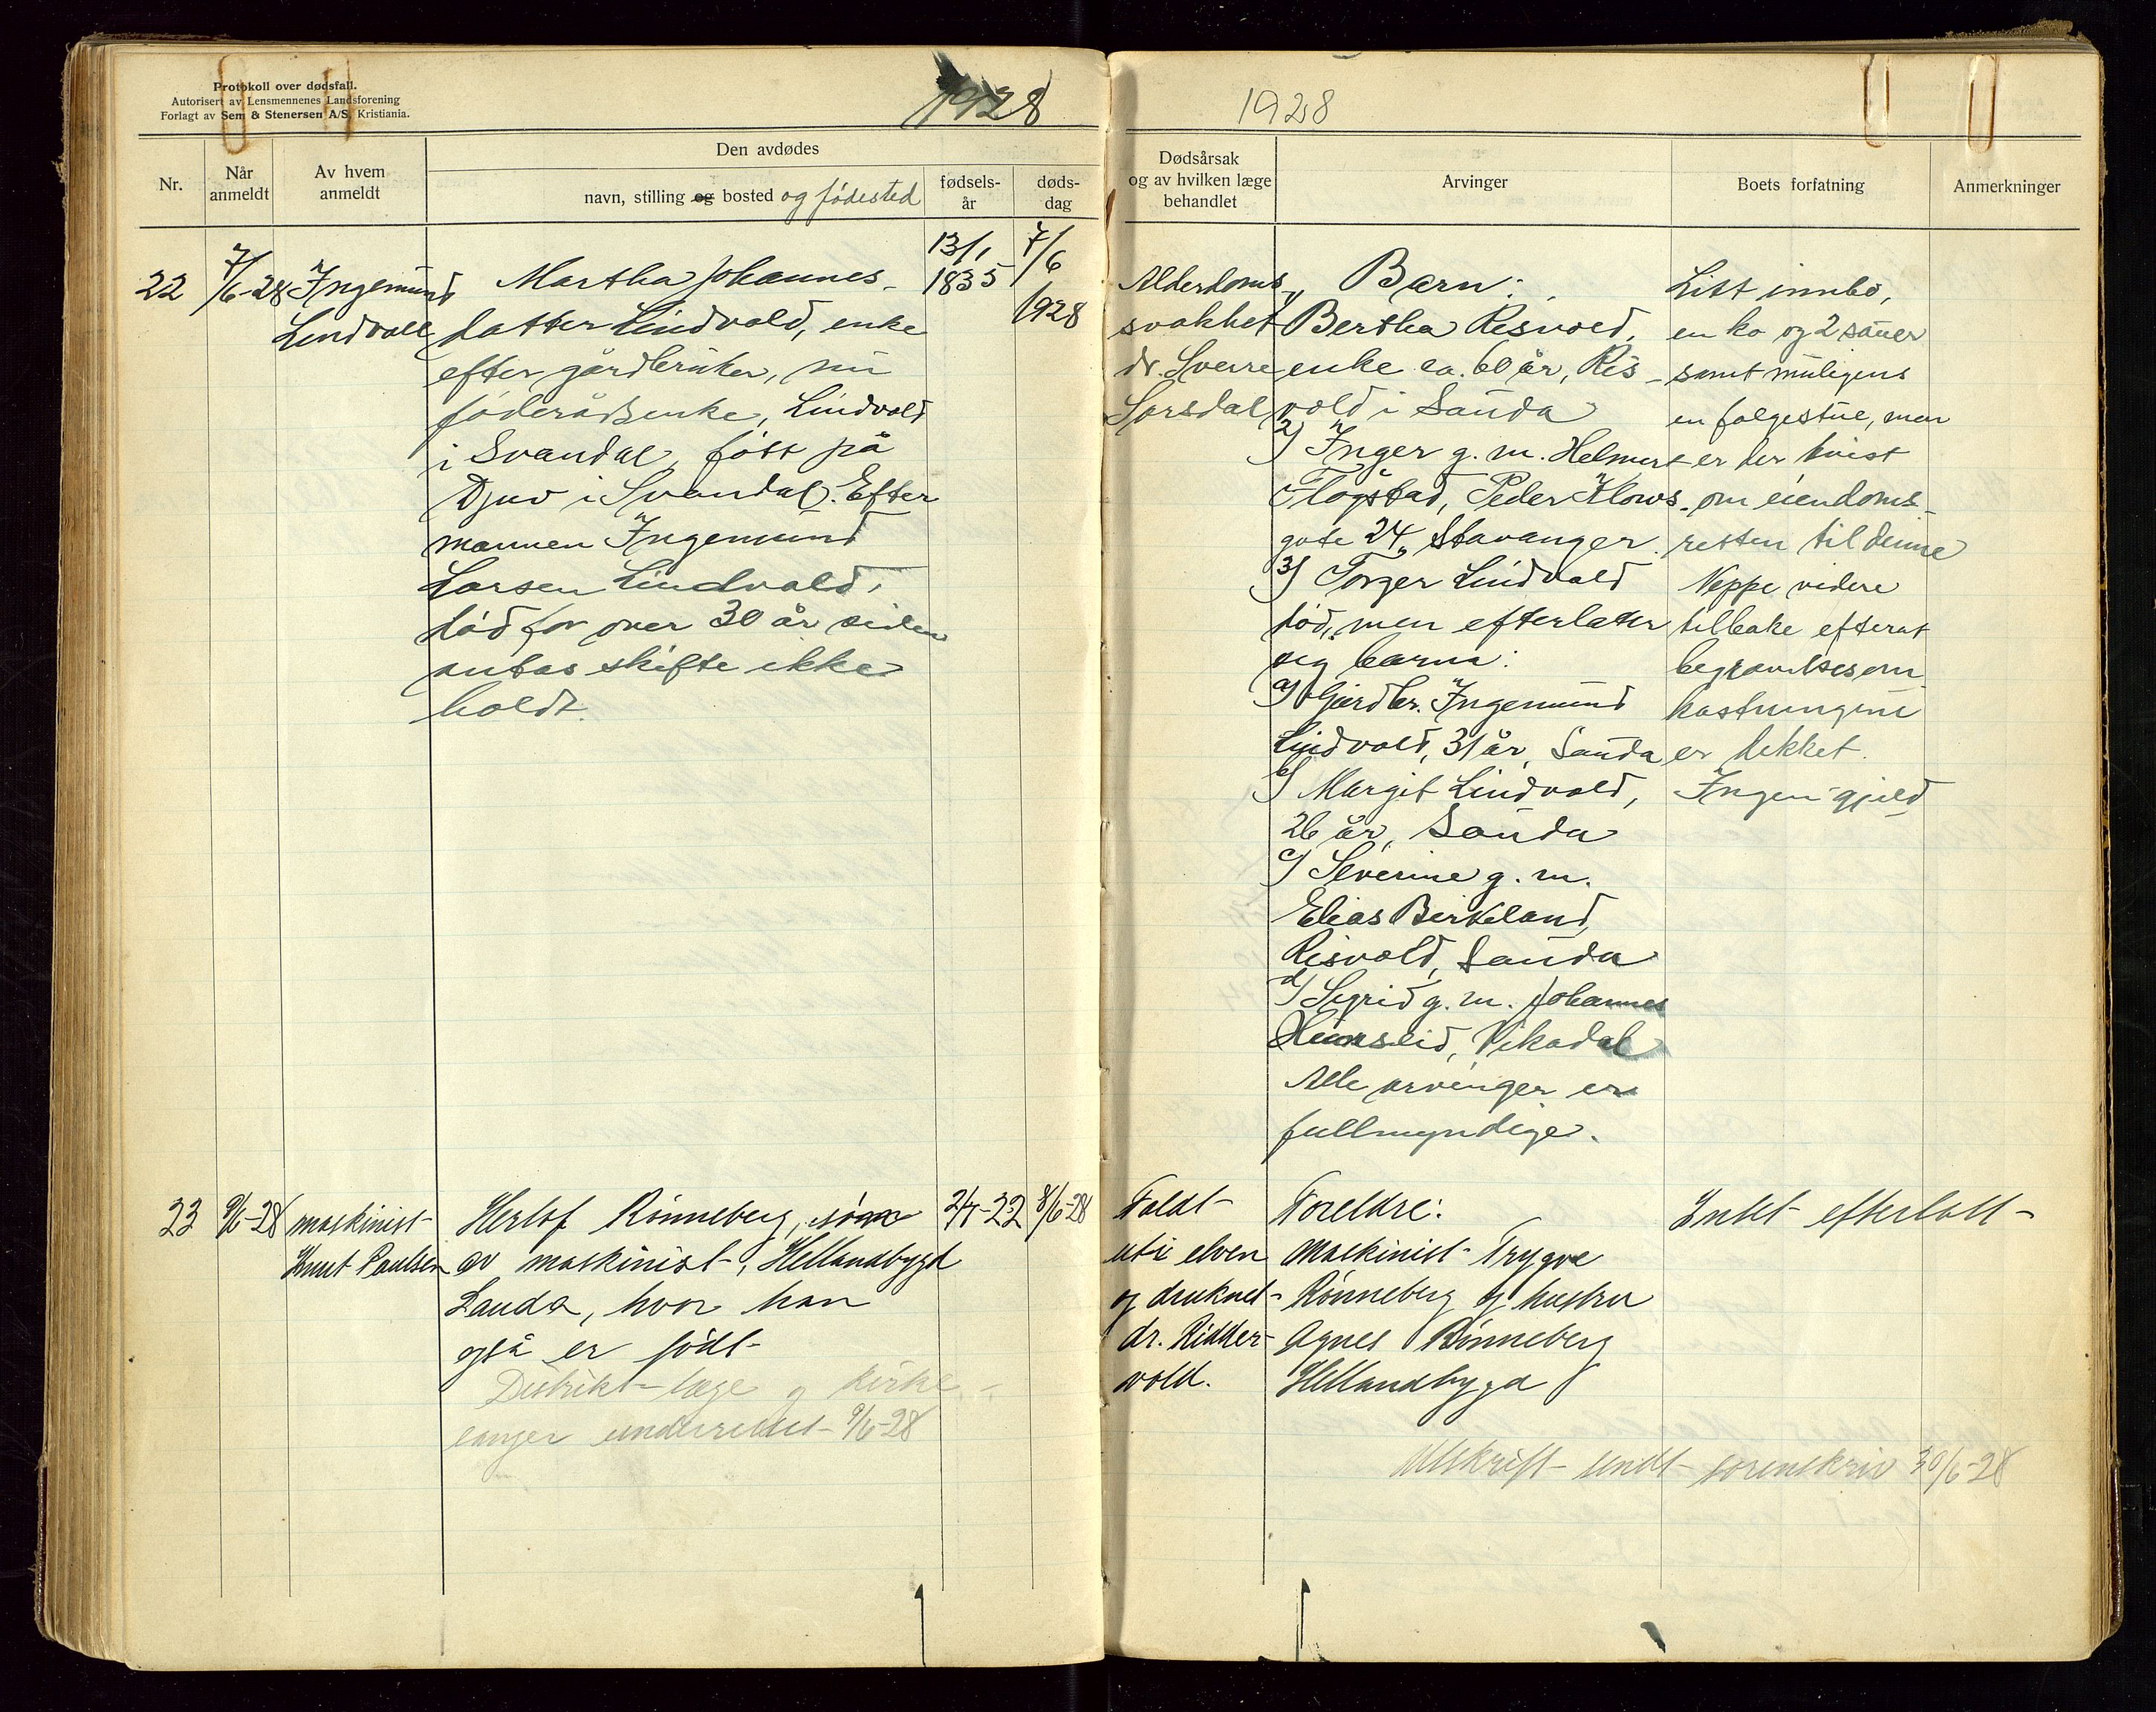 Protokoll over dødsfall.
Autorisert av Lensmennenes Landsforening
Forlagt av Sem & Stenersen A/S, Kristiania.
1928
Nr.
Når
anmeldt
Av hvem
anmeldt
Den avdødes
navn, stilling og bosted og fødested
fødsels-
år
døds-
dag
22
7/6-28
Ingemund
Lindvall
Martha Johannes-
datter Lindvold, enke
efter gårdbruker, nu
føderådsenke, Lindvold
i Svandal, født på
Djuv i Svandal. Efter
mannen Ingemund
Larsen Lindvold,
død for over 30 år siden
antas skifte ikke
holdt.
13/1
1835
7/6
1928
23
9/6-28
maskinist
Knut Paulsen
Herlof Rønneberg, søn
av maskinist, Hellandbygd
Sauda, hvor han
også er født
Distriktslæge og kirke-
sanger underrettet 9/6-28
22
8/6-28
1928
Dødsårsak
og av hvilken læge
behandlet
Arvinger
Boets forfatning
Anmerkninger
Alderdoms
svakhet
dr. Sverre
Sørsdal
Barn:
Bertha Risvold,
enke ca. 60 år, Ris-
vold i Sauda
2) Inger g. m. Helmert
Fløgstad, Peder Klows
gate 24, Stavanger.
3) Torger Lindvold
død, men efterlater
sig barna:
a) Gårdbr. Ingemund
Lindvold, 31 år, Sauda
b) Margit Lindvold,
26 år, Sauda
c) Severine g. m.
Elias Birkeland,
Risvold, Sauda
d) Sigrid g. m. Johannes
Vikadal
Alle arvinger er
fullmyndige.
Litt innbo,
en ko og 2 sauer
samt muligens
en følgestue, men
er der tvist
om eiendoms-
retten til denne
Neppe videre
tilbake efterat
begravelsesom
kostningene
er dekket.
Ingen gjeld
Faldt
ut i elven
og druknet
dr. Ridder-
vold.
Foreldre:
Maskinist Trygve
Rønneberg og hustru
Agnes Rønneberg
Hellandbygd
Intet efterlatt
Utskrift sendt sorenskriv 30/6-28